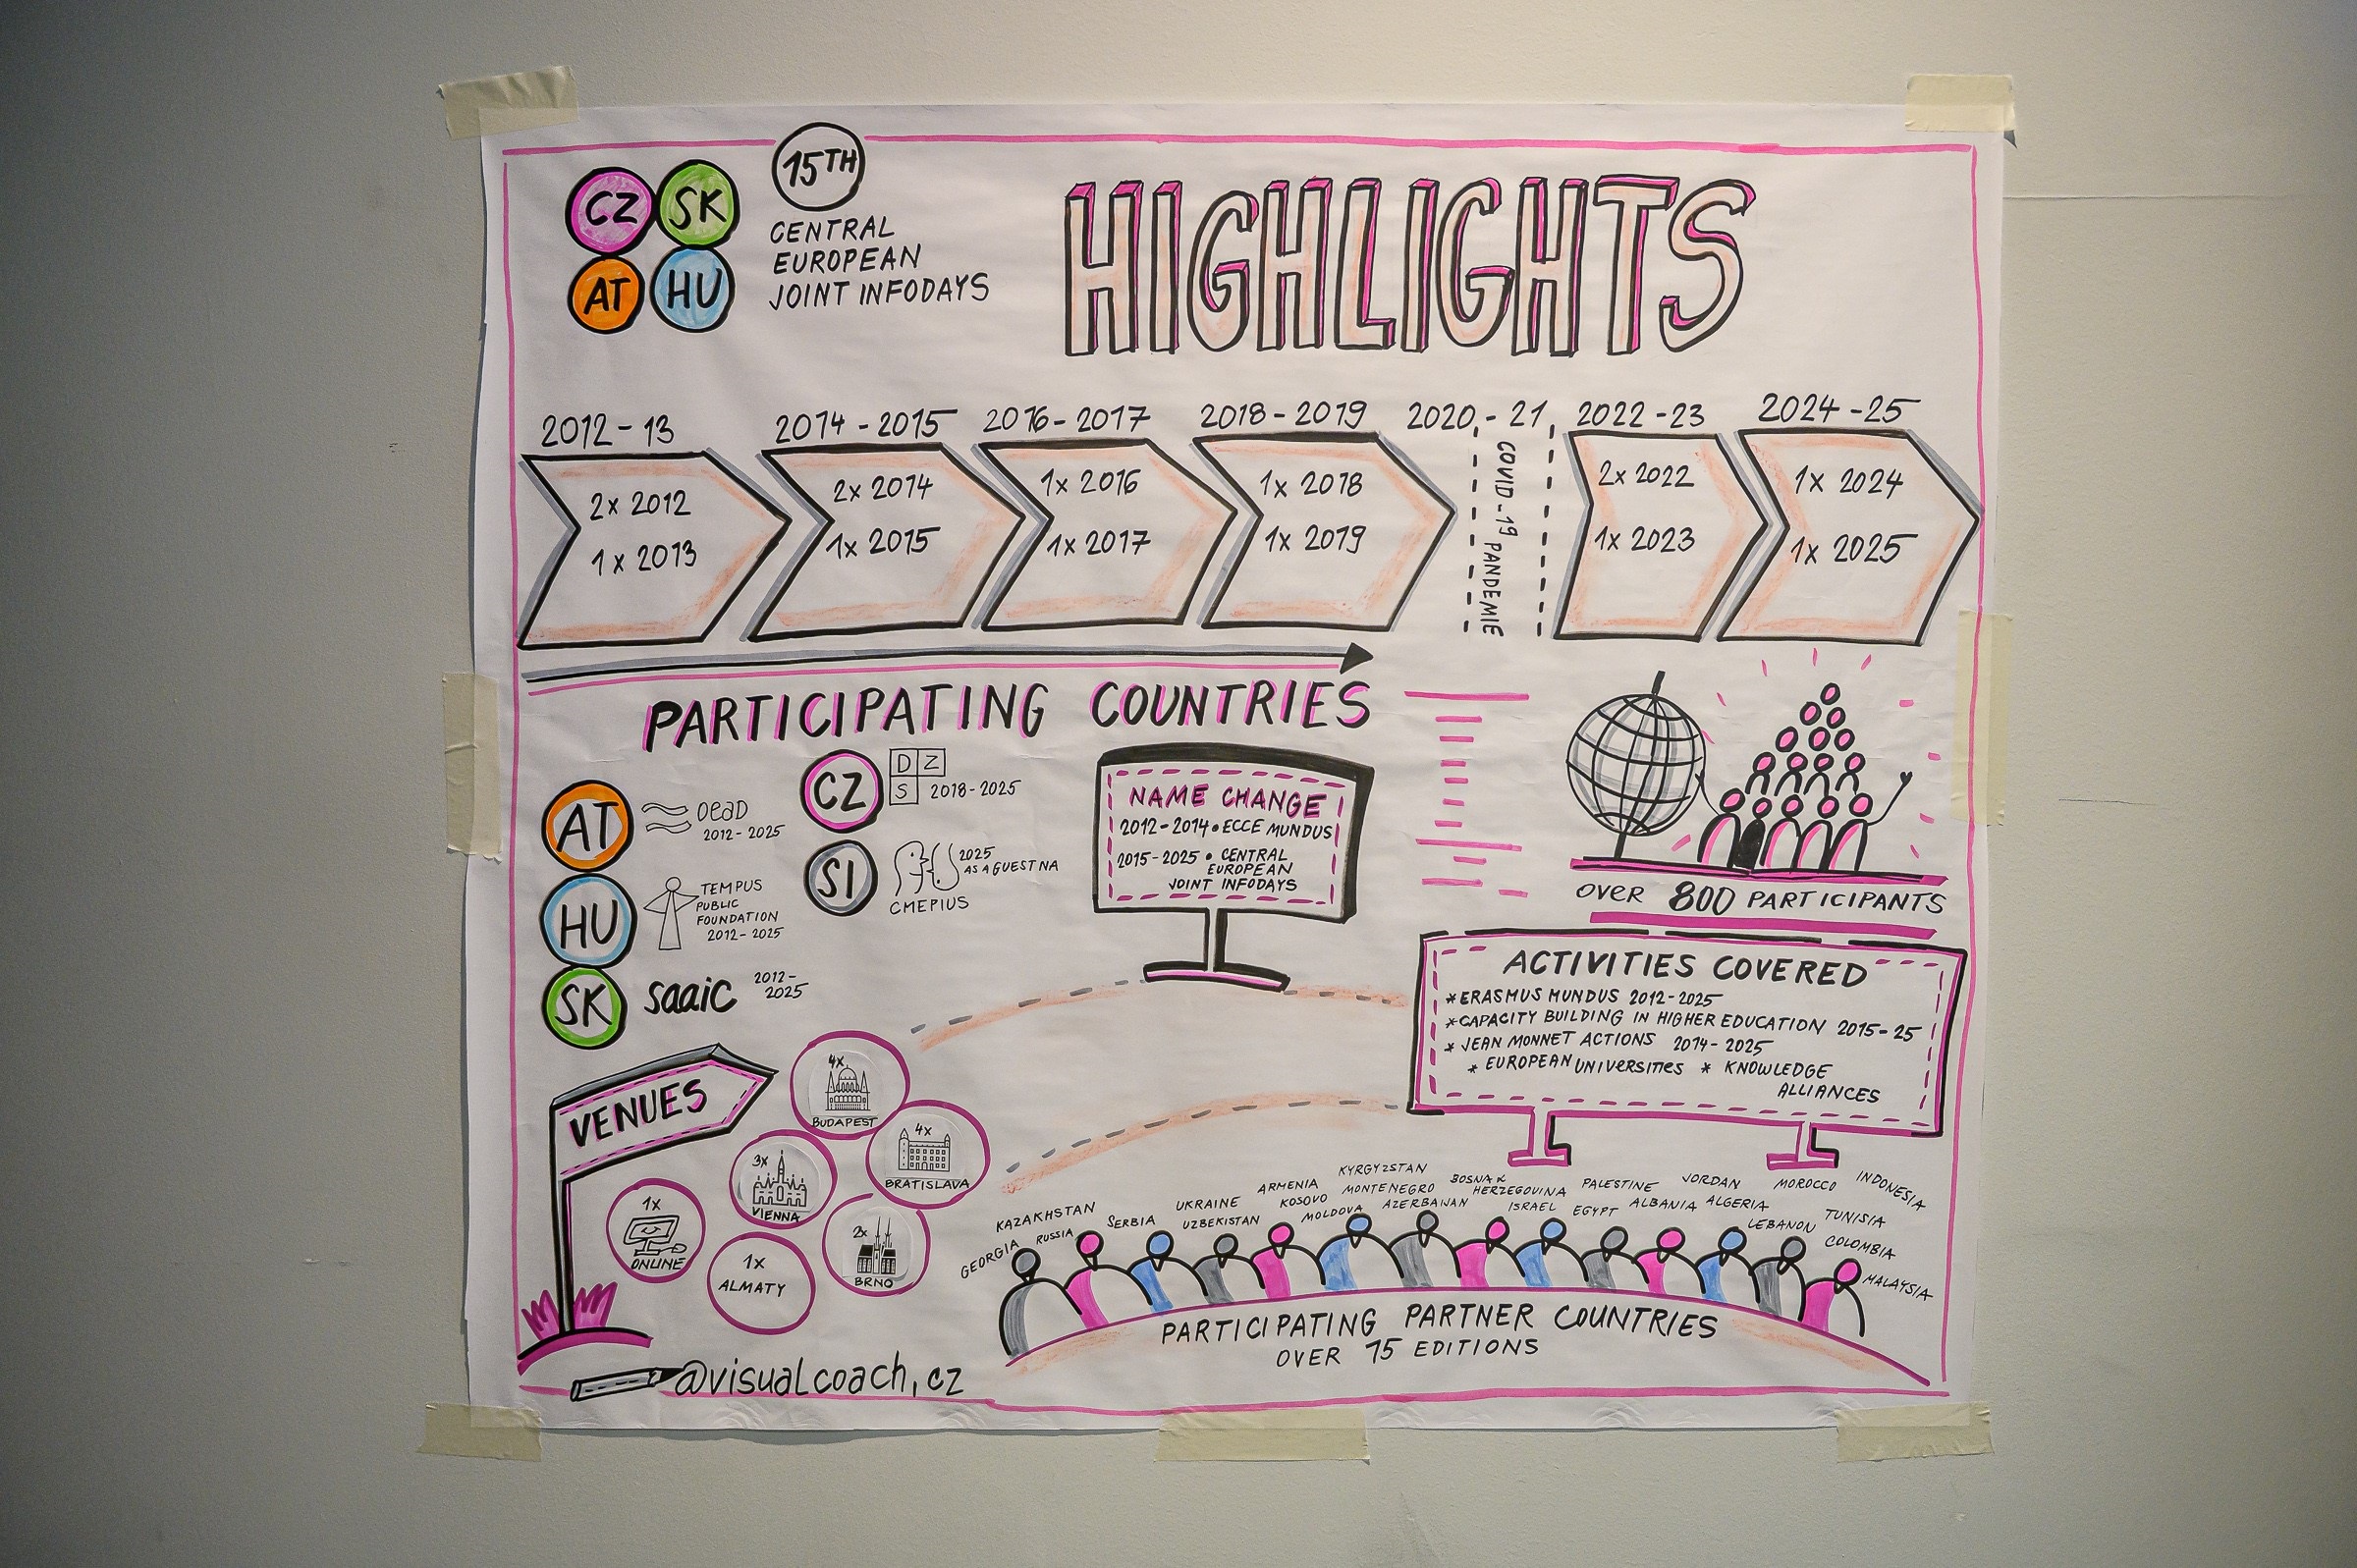 CZ SK
AT HU
15TH
CENTRAL
EUROPEAN
JOINT INFODAYS
HIGHLIGHTS
2012-13
2x 2012
1x 2013
2014-2015
2x 2014
1x 2015
2016-2017
1x 2016
1x 2017
2018-2019
1x 2018
1x 2019
2020-21
COVID-19 PANDEMIE
2022-23
2x 2022
1x 2023
2024-25
1x 2024
1x 2025
PARTICIPATING COUNTRIES
AT
OeaD
2012-2025
HU
TEMPUS
PUBLIC
FOUNDATION
2012-2025
SK
saaic
2012-
2025
CZ
D Z
S
2018-2025
SI
2025
AS A GUEST NA
CMEPIUS
NAME CHANGE
2012-2014 • ECCE MUNDUS
2015-2025 • CENTRAL
EUROPEAN
JOINT INFODAYS
OVER 800 PARTICIPANTS
ACTIVITIES COVERED
* ERASMUS MUNDUS 2012-2025
* CAPACITY BUILDING IN HIGHER EDUCATION 2015-25
* JEAN MONNET ACTIONS 2014-2025
* EUROPEAN UNIVERSITIES * KNOWLEDGE
ALLIANCES
VENUES
4x
BUDAPEST
4x
BRATISLAVA
3x
VIENNA
2x
BRNO
1x
ONLINE
1x
ALMATY
GEORGIA
KAZAKHSTAN
RUSSIA
SERBIA
UKRAINE
UZBEKISTAN
ARMENIA
KOSOVO
MOLDOVA
KYRGYZSTAN
MONTENEGRO
AZERBAIJAN
BOSNA &
HERZEGOVINA
ISRAEL
PALESTINE
EGYPT
ALBANIA
JORDAN
ALGERIA
LEBANON
MOROCCO
TUNISIA
COLOMBIA
INDONESIA
MALAYSIA
PARTICIPATING PARTNER COUNTRIES
OVER 15 EDITIONS
@visualcoach.cz